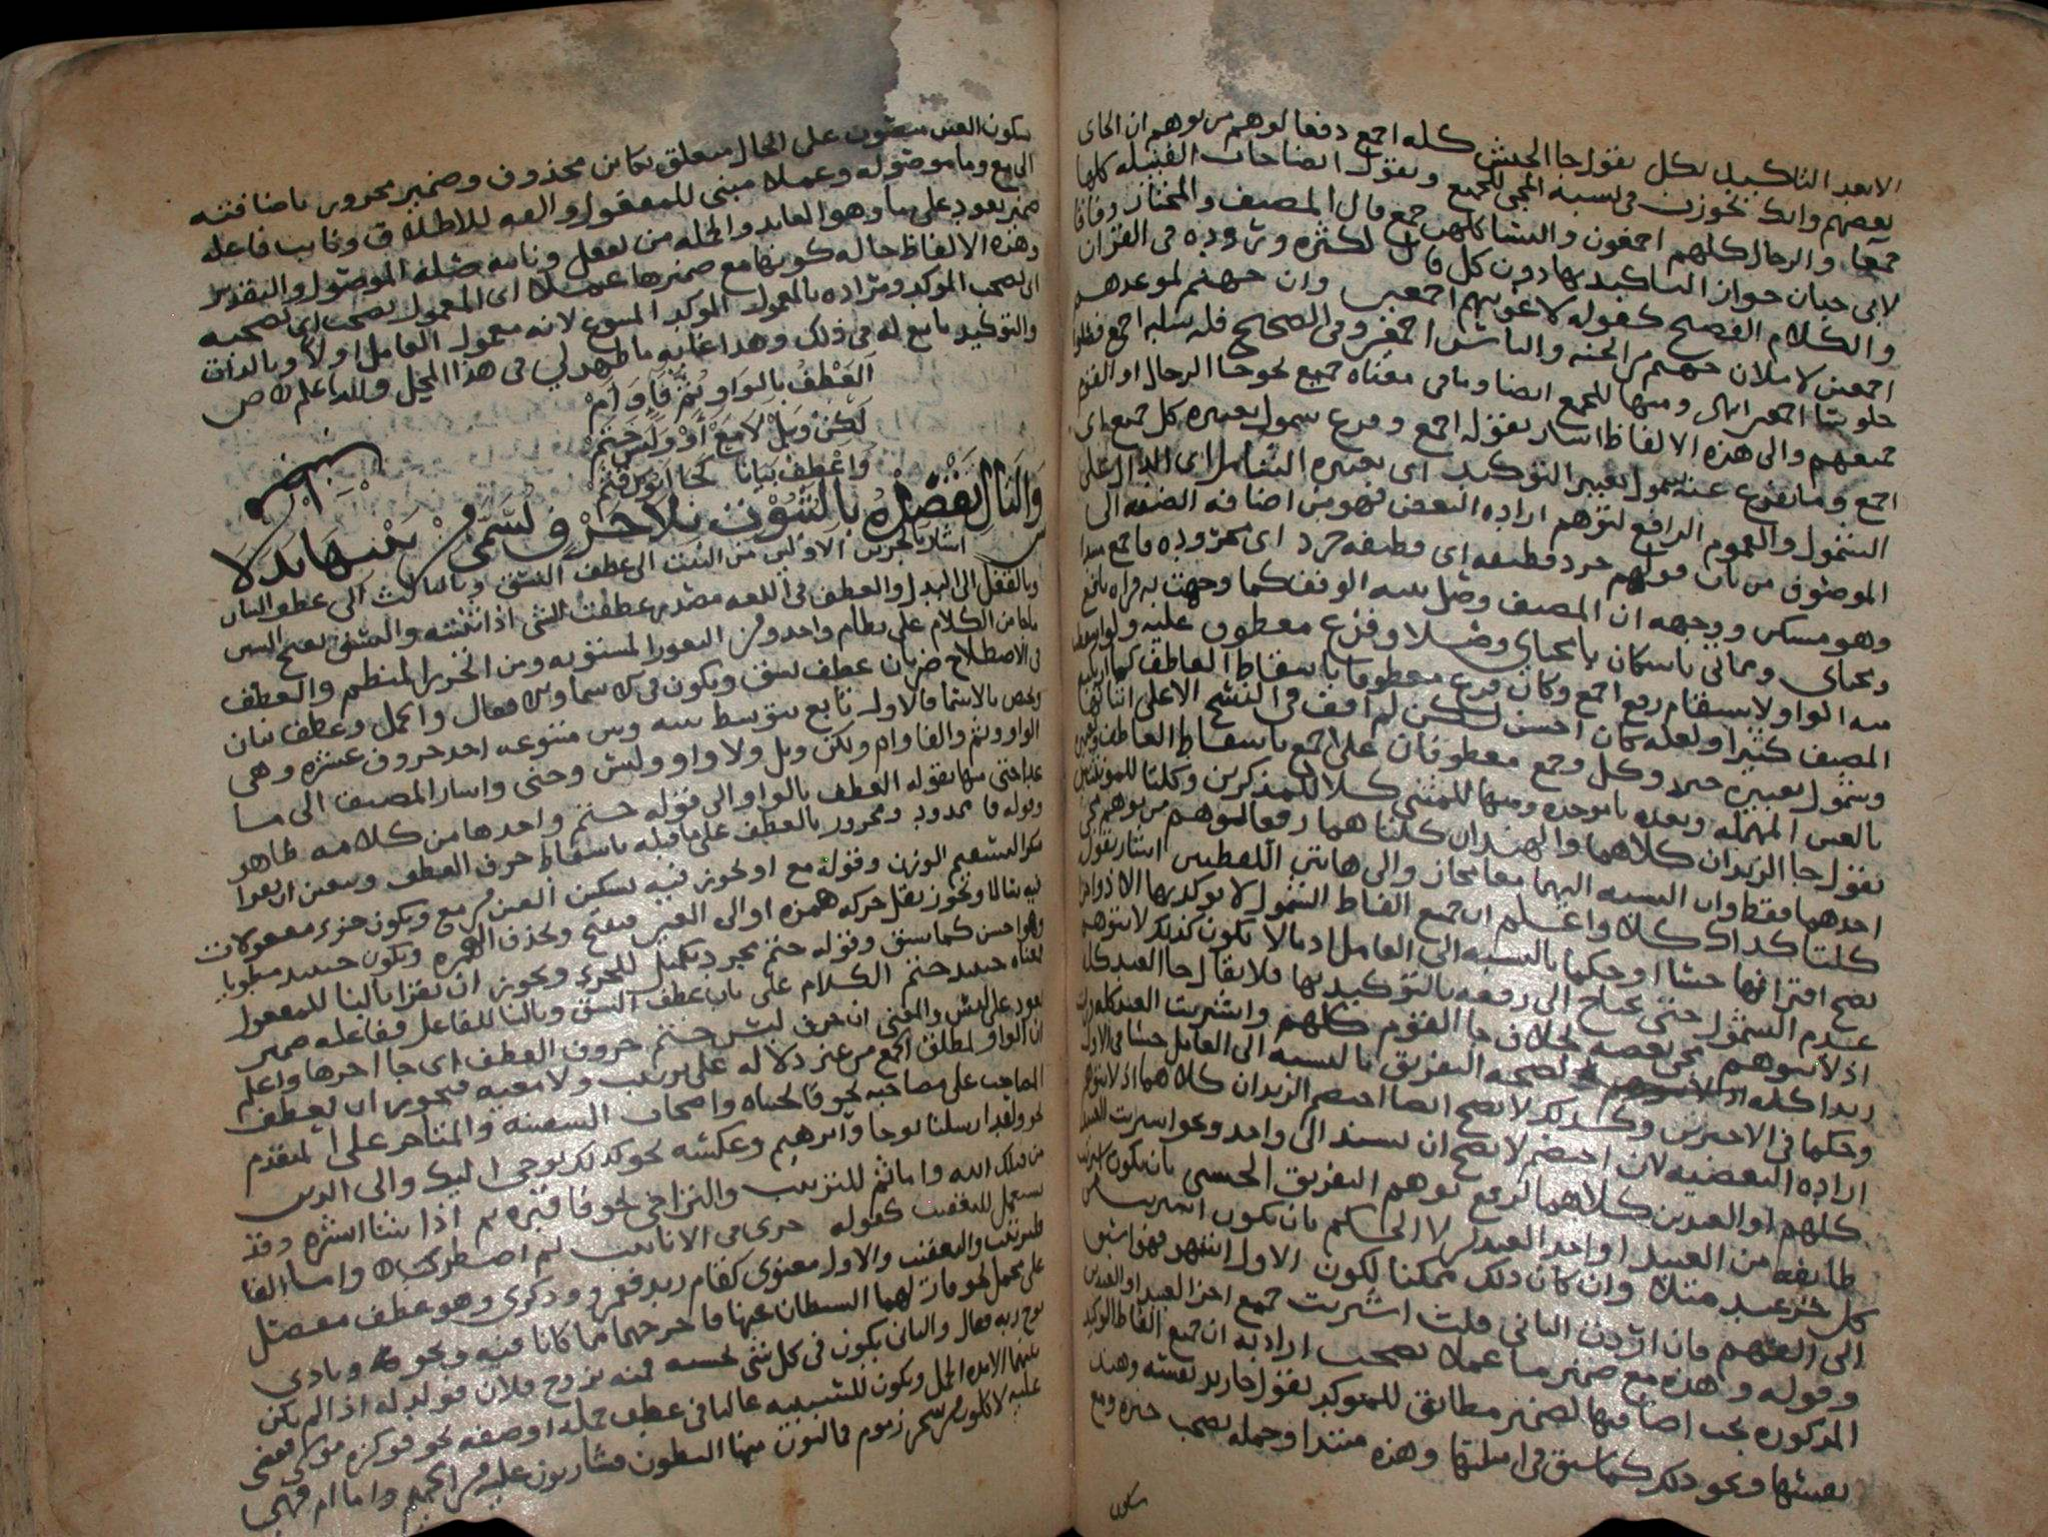 الا بعد التاكيد بكل بقول جا الجيش كله اجمع دفعا لوهم من يوهم ان الجاى
بعضهم وانك تجوزت فى نسبه المجى للجميع وتقول ايضا جات القبيله كلها
جمعا والرجال كلهم اجمعون والنسا كلهن جمع قال المصنف والمختار وفاقا
لابى حيان جواز التاكيد بها دون كل قال لكثره وروده فى القران
والكلام الفصيح كقوله لاغوينهم اجمعين وان جهنم لموعدهم
اجمعين لاملان جهنم من الجنه والناس اجمعين وفى الصحيح فله سلبه اجمع فصلوا
جلوسا اجمعين ومنها للجمع ايضا وما فى معناه جميع نحو جا الرجال او القوم
جميعهم والى هذه الالفاظ اشار بقوله اجمع وفرع شمول بعبره كل جميع اى
اجمع وما تفرع عنه شمول تعبير التوكيد اى بعبره الشامل اى الدال على
الشمول والعموم الرافع لتوهم اراده البعض فهو من اضافه الصفه الى
الموصوف من باب قولهم جرد قطيفه اى قطيفه جرد اى مجروده فاجمع مبتدا
وهو مسكن ووجهه ان المصنف وصل بنيه الوقف كما وجهت به قراه نافع
ومحياى ومماتى باسكان يا محياى وصلا وفرع معطوف عليه
منه الواو لاستقام رفع اجمع وكان فرع معطوفا باسقاط العاطف كما
المصنف كثيرا ولعله كان احسن لكن لم اقف فى النسخ الا على اثباتها
وشمول بعبره خبر وكل وجمع معطوفان على اجمع باسقاط العاطف
بالعين المهمله وبعده با موحده ومنها للمثنى كلا للمذكرين وكلتا للمونثتين
بقول جا الزيدان كلاهما والهندان كلتاهما دفعا لتوهم من يوهم مجى
احدهما فقط وان النسبه اليهما معا مجاز والى هاتين اللفظين اشار بقوله
كلتا كذاك كلا واعلم ان جميع الفاظ الشمول لا يوكد بها الا ذو اجزا
يصح افتراقها حسا او حكما بالنسبه الى العامل اذ مالا يكون كذلك لا يتوهم
عدم الشمول حتى يحتاج الى رفعه بالتوكيد بها فلا يقال جا العبد كله
اذ لا يتوهم مجى بعضه بخلاف جا القوم كلهم واشتريت العبد كله
زيدا كله لصحه التفريق بالنسبه الى العامل حسا فى الاول
وحكما فى الاخيرين وكذلك لا يصح ايضا اختصم الزيدان كلاهما اذ لا يتوهم
اراده البعضيه لان اختصم لا يصح ان يسند الى واحد ونحو اشتريت العبيد
كلهم او العبدين كلاهما لرفع توهم التفريق الحسى بان يكون اشتريت
طايفه من العبيد او احد العبدين لا الحكمى بان يكون اشتريت من
كل جز عبد مثلا وان كان ذلك ممكنا لكون الاول اشهر فهو اسبق
الى الفهم فان اردت الثانى قلت اشتريت جميع اجزا العبيد او العبدين
وقوله وهذه مع ضمير ما عملا تصحب اراد به ان جميع الفاظ التوكيد
المذكوره يجب اضافتها لضمير مطابق للموكد بقول جا زيد نفسه وهند
نفسها ونحو ذلك كما سبق فى امثلتها وهذه مبتدا وجمله تصحب خبره ومع
سكون
بسكون العين منصوب على الحال متعلق بكاين محذوف وضمير مجرور باضافته
الى مع وما موصوله وعملا مبنى للمفعول والفه للاطلاق ونايب فاعله
ضمير يعود على ما وهو العايد والجمله من الفعل ونايبه صله الموصول والتقدير
وهذه الالفاظ حاله كونها مع ضميرها عملا اى المعمول تصحب اى تصحبه
اى تصحب الموكد ومراده بالمعمول الموكد المتبوع لانه معمول العامل اولا وبالذات
والتوكيد تابع له فى ذلك وهذا غايه ما ظهر لى فى هذا المحل والله اعلم ص
العَطْفُ بالواو ثُمَّ فَا وَ اَمْ
لَكِنْ وَبَلْ لَا مَعْ اَوْ وَلَيْسَ حَتَمْ
وَاعْطِفْ بَيَانًا كجا ابو
وَالتَّالِ تَفْصِلُ بِالْنَّسَقْ بلا حرف تسمى بدلا
ش اشار بالجزين الاولين من البيت الى عطف النسق وبالثالث الى عطف البيان
وبالفقل الى البدل والعطف فى اللغه مصدر عطفت الشى اذا ثنيته والنسق بفتح السين
ما جا من الكلام على نظام واحد ومن الثغور المستويه ومن الخرز المنظم والعطف
فى الاصطلاح ضربان عطف نسق ويكون فى الاسما والافعال والجمل وعطف بيان
ويختص بالاسما فالاول تابع يتوسط بينه وبين متبوعه احد حروف عشره وهى
الواو وثم والفا وام ولكن وبل ولا واو وليس وحتى واشار المصنف الى ما
عدا حتى منها بقوله العطف بالواو الى قوله حتم واحدها من كلامه ظاهر
وقوله فا ممدود ومجرور بالعطف على ما قبله باسقاط حرف العطف
ليستقيم الوزن وقوله مع او يجوز فيه تسكين العين من مع ويكون جزء مفعولات
فيه سالما ويجوز نقل حركه همزه او الى العين فتفتح وتحذف الهمزه ويكون حينيذ مطويا
وهو احسن كما سبق وقوله حتم مجرد تكميل للجزء ويجوز ان تقرا بالبنا للمفعول
معناه حينيذ حتم الكلام على باب عطف النسق وبالبنا للفاعل ففاعله ضمير
يعود على ليس والمعنى ان حرف ليس ختم حروف العطف اى جا اخرها واعلم
ان الواو لمطلق الجمع من غير دلاله على ترتيب ولا معيه فيجوز ان يعطف
المصاحب على مصاحبه نحو فانجيناه واصحاب السفينه والمتاخر على المتقدم
نحو ولقد ارسلنا نوحا وابرهيم وعكسه نحو كذلك يوحى اليك والى الذين
من قبلك الله واما ثم للترتيب والتراخى نحو فاقبره ثم اذا شا انشره وقد
تستعمل للتعقيب كقوله جرى فى الانابيب ثم اضطرب واما الفا
للترتيب والتعقيب والاول معنوى كقام زيد فعمرو وذكرى وهو عطف مفصل
على مجمل نحو فازلهما الشيطان عنها فاخرجهما مما كانا فيه ونحو ونادى
نوح ربه فقال والثانى يكون فى كل شى بحسبه فمنه تزوج فلان فولد له اذا لم يكن
بينهما الا مده الحمل ويكون للسببيه غالبا فى عطف جمله او صفه نحو فوكزه موسى فقضى
عليه لاكلون من شجر من زقوم فمالون منها البطون فشاربون عليه من الحميم واما ام فهى